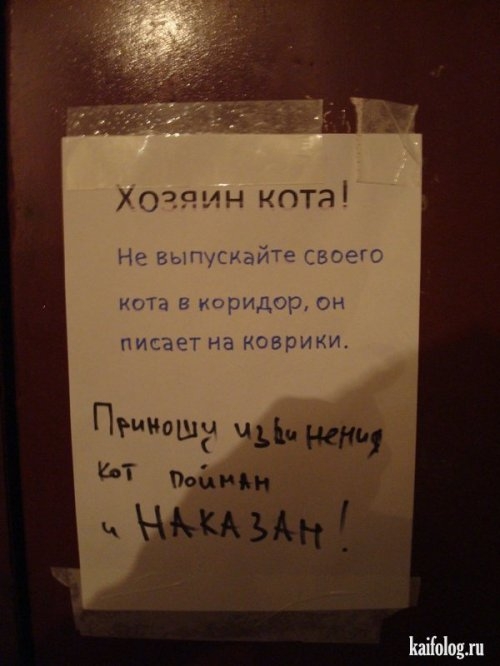 Хозяин кота!
Не выпускайте своего
кота в коридор, он
писает на коврики.
Приношу извинения
кот пойман
и НАКАЗАН!
kaifolog.ru